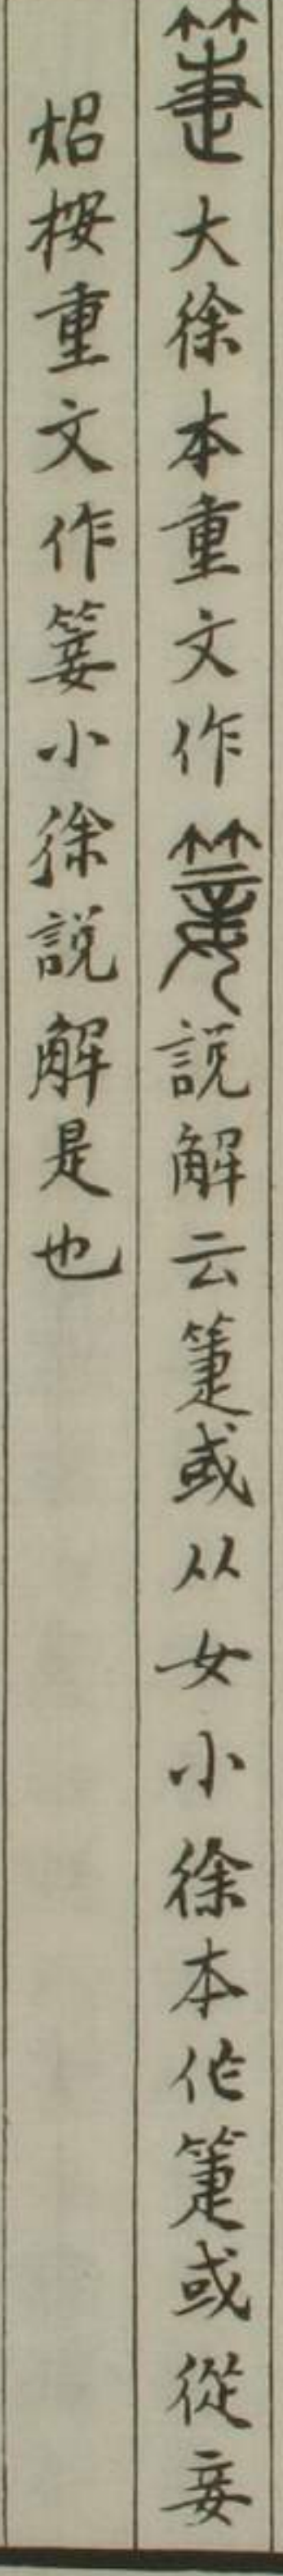 箑大徐本重文作篓説解云箑或从女小徐本作箑或從妾
炤按重文作篓小徐説解是也